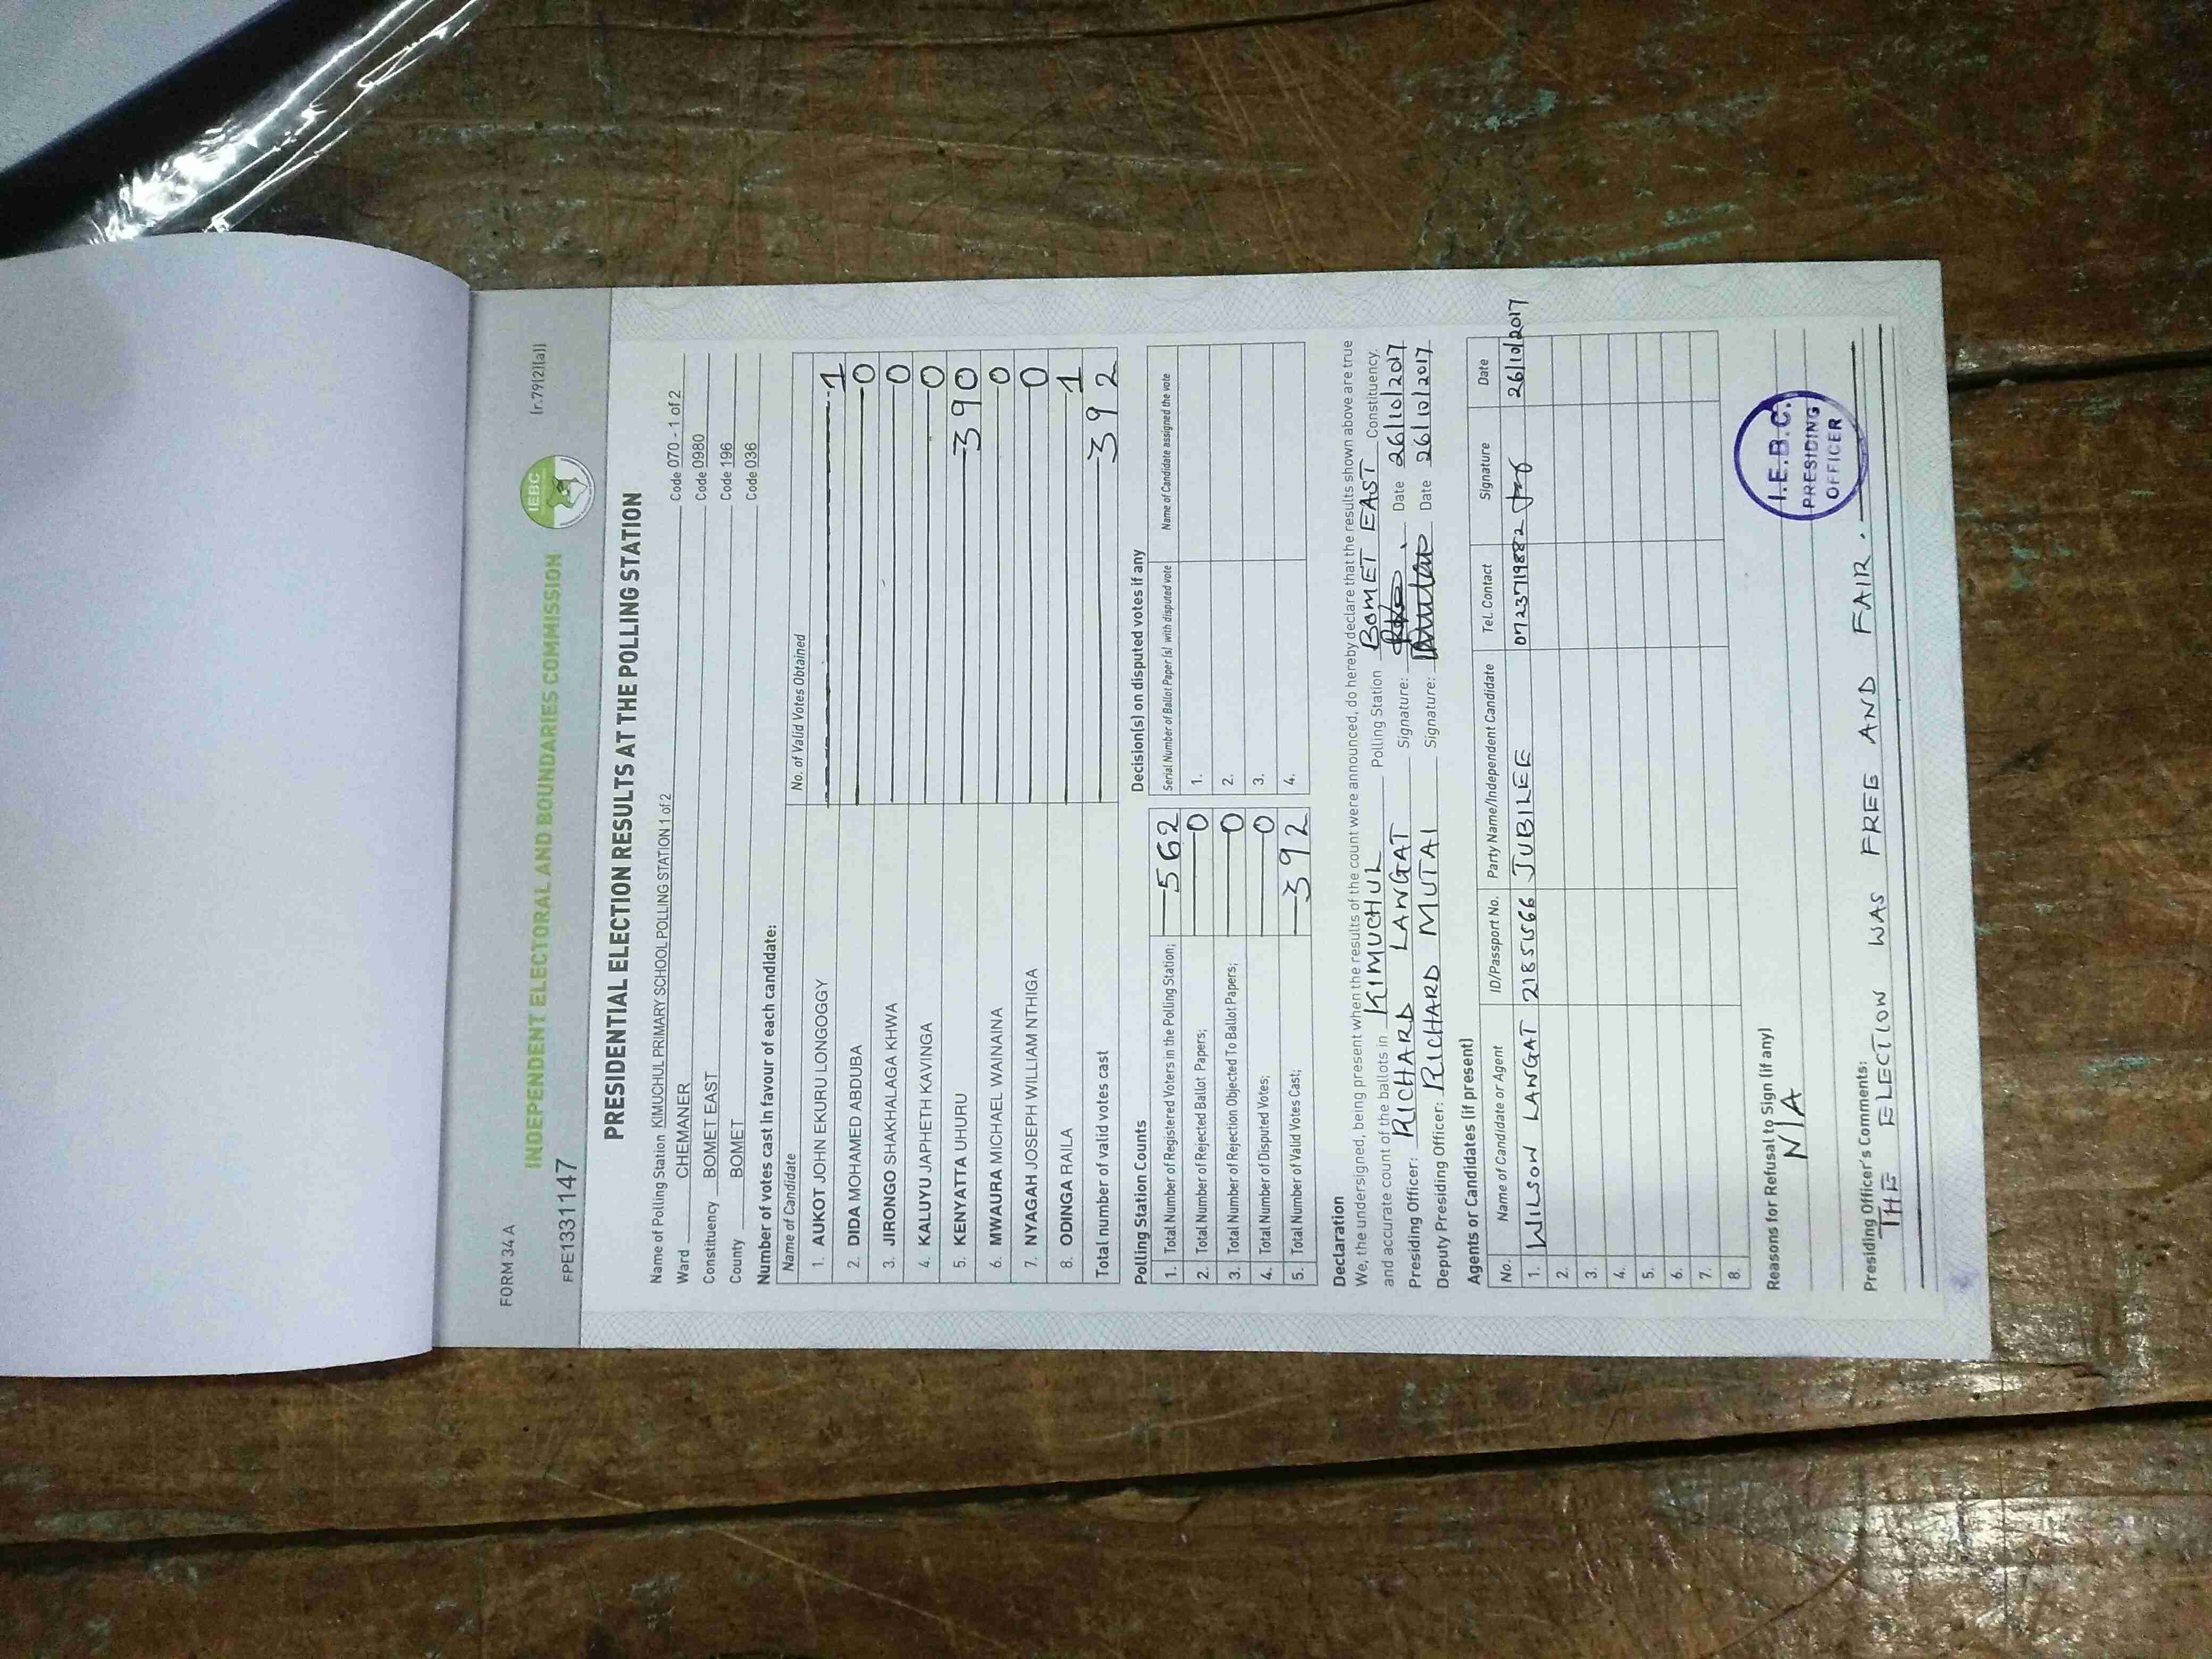 FORM 34 A
(r.79(2)(a))
INDEPENDENT ELECTORAL AND BOUNDARIES COMMISSION
IEBC
FPE1331147
PRESIDENTIAL ELECTION RESULTS AT THE POLLING STATION
Name of Polling Station KIMUCHUL PRIMARY SCHOOL POLLING STATION 1 of 2 Code 070 - 1 of 2
Ward CHEMANER Code 0980
Constituency BOMET EAST Code 196
County BOMET Code 036
Number of votes cast in favour of each candidate:
Name of Candidate No. of Valid Votes Obtained
1. AUKOT JOHN EKURU LONGOGGY 1
2. DIDA MOHAMED ABDUBA 0
3. JIRONGO SHAKHALAGA KHWA 0
4. KALUYU JAPHETH KAVINGA 0
5. KENYATTA UHURU 390
6. MWAURA MICHAEL WAINAINA 0
7. NYAGAH JOSEPH WILLIAM NTHIGA 0
8. ODINGA RAILA 1
Total number of valid votes cast 392
Polling Station Counts Decision(s) on disputed votes if any
1. Total Number of Registered Voters in the Polling Station; 562 Serial Number of Ballot Paper (s) with disputed vote Name of Candidate assigned the vote
2. Total Number of Rejected Ballot Papers; 0 1.
3. Total Number of Rejection Objected To Ballot Papers; 0 2.
4. Total Number of Disputed Votes; 0 3.
5. Total Number of Valid Votes Cast; 392 4.
Declaration
We, the undersigned, being present when the results of the count were announced, do hereby declare that the results shown above are true
and accurate count of the ballots in KIMUCHUL Polling Station BOMET EAST Constituency.
Presiding Officer: RICHARD LANGAT Signature: Date 26/10/2017
Deputy Presiding Officer: RICHARD MUTAI Signature: Date 26/10/2017
Agents or Candidates (if present)
No. Name of Candidate or Agent ID/Passport No. Party Name/Independent Candidate Tel. Contact Signature Date
1. WILSON LANGAT JUBILEE 0723719882 26/10/2017
2.
3.
4.
5.
6.
7.
8.
Reasons for Refusal to Sign (if any)
N/A
I.E.B.C.
PRESIDING
OFFICER
Presiding Officer's Comments:
THE ELECTION WAS FREE AND FAIR.